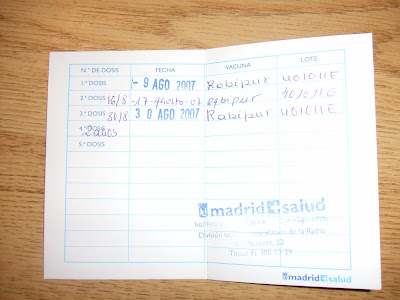 N.º DE DOSIS FECHA VACUNA LOTE
1.ª DOSIS - 9 AGO 2007 Rabipur 401011E
2.ª DOSIS 16/8 - 17 - Agosto - 07 Rabipur 401011E
3.ª DOSIS 31/8 3 0 AGO 2007 Rabipur 401011E
4.ª DOSIS
2 años
5.ª DOSIS
madrid salud
División de de la Rabia
22
madrid salud